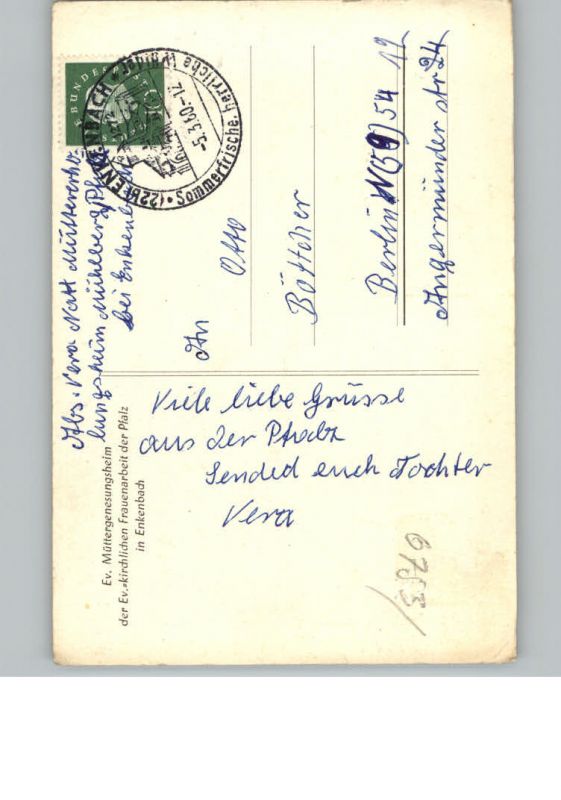 Abs. Vera Natt Müttererho-
lungsheim Mühlberg/Pfalz
bei Enkenbach
BUNDES
(22b) ENKENBACH
-5.3.60-12
Sommerfrische, herrliche Wälder
An
Otto
Böttcher
Berlin N (59) 54 12
Angermünder str 24
Ev. Müttergenesungsheim
der Ev.-kirchlichen Frauenarbeit der Pfalz
in Enkenbach
Viele liebe Grüsse
aus der Pfalz
Sended euch Tochter
Vera
6753